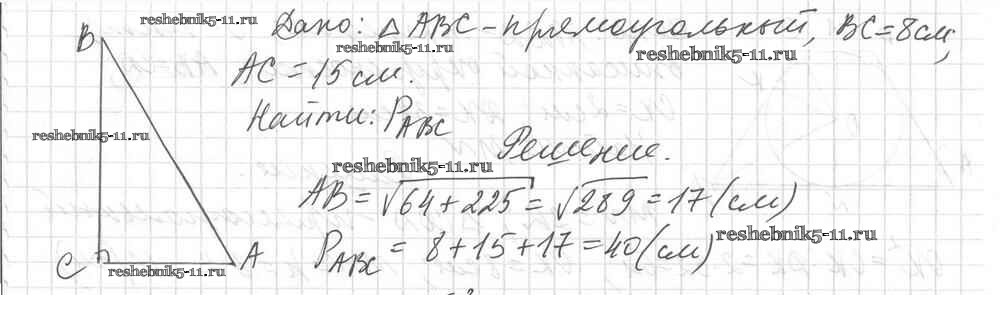 reshebnik5-11.ru
Дано: △ABC - прямоугольный, BC = 8 см,
reshebnik5-11.ru
reshebnik5-11.ru
B
AC = 15 см.
Найти: P_ABC
reshebnik5-11.ru
Решение.
reshebnik5-11.ru
AB = √64+225 = √289 = 17 (см)
P_ABC = 8+15+17 = 40 (см)
reshebnik5-11.ru
C
A
reshebnik5-11.ru